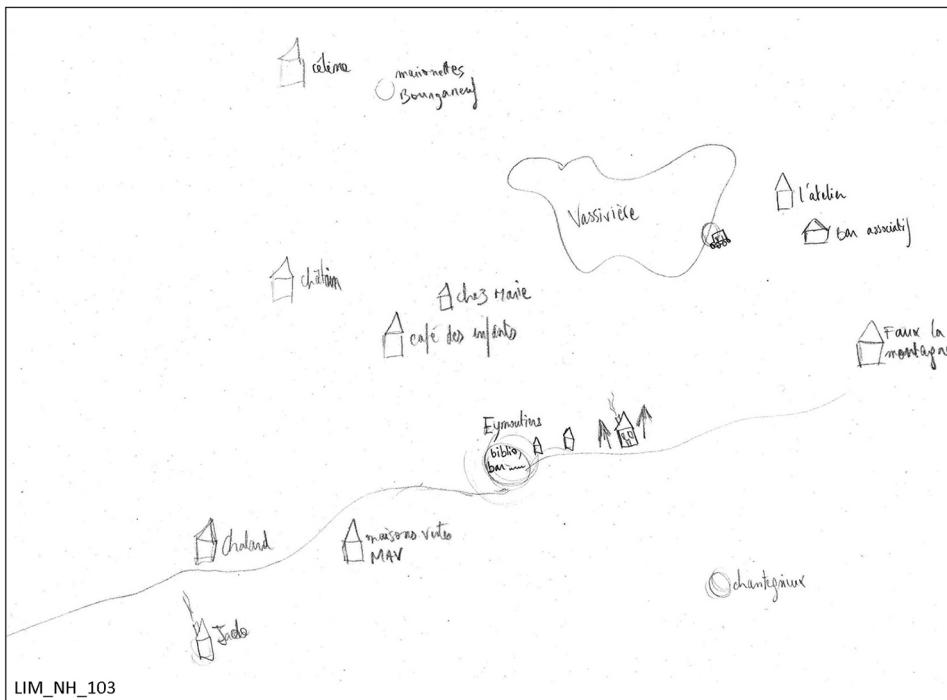 céline
marionnettes
Bourganeuf
Vassivière
l'atelier
bar associatif
châtain
chez Marie
café des enfants
Faux la
montagne
Eymoutiers
biblio,
bar
Chaland
maisons vertes
MAV
Jado
LIM_NH_103